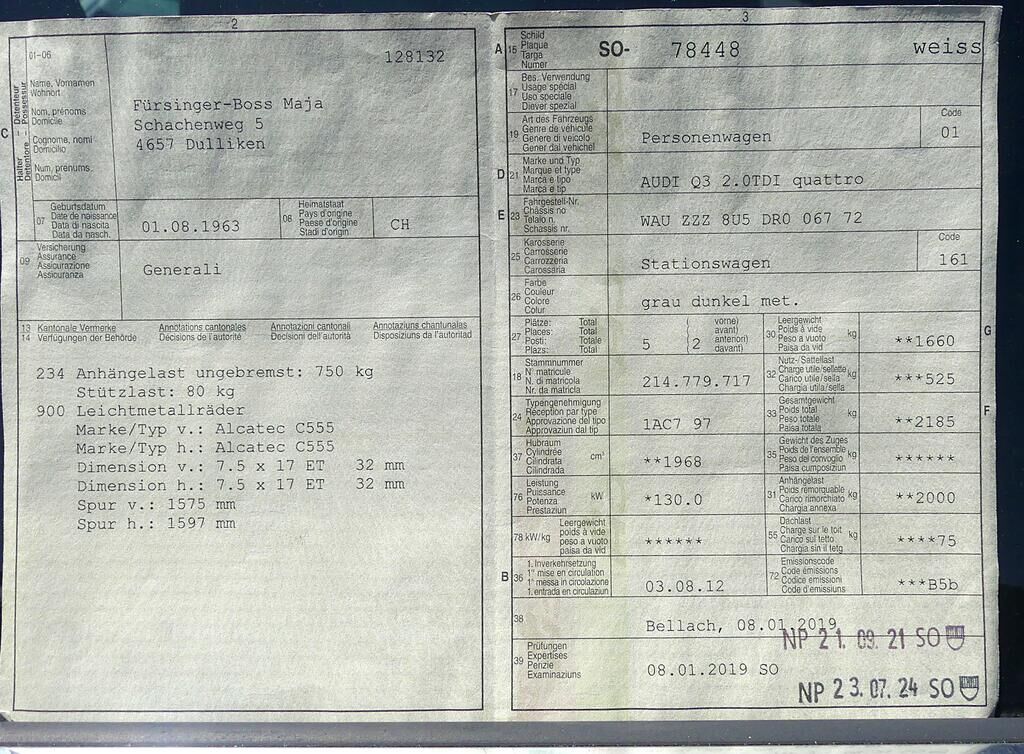 2
01-06
128132
C
Halter Detenteur
Detentore Possessur
Name, Vornamen
Wohnort
Nom, prénoms
Domicile
Cognome, nomi
Domicilio
Num, prenums
Domicil
Fürsinger-Boss Maja
Schachenweg 5
4657 Dulliken
07
Geburtsdatum
Date de naissance
Data di nascita
Data da nasch.
01.08.1963
08
Heimatstaat
Pays d'origine
Paese d'origine
Stadi d'origin
CH
09
Versicherung
Assurance
Assicurazione
Assicuranza
Generali
13 Kantonale Vermerke Annotations cantonales Annotazioni cantonali Annotaziuns chantunalas
14 Verfügungen der Behörde Décisions de l'autorité Decisioni dell'autorità Disposiziuns da l'autoritad
234 Anhängelast ungebremst: 750 kg
Stützlast: 80 kg
900 Leichtmetallräder
Marke/Typ v.: Alcatec C555
Marke/Typ h.: Alcatec C555
Dimension v.: 7.5 x 17 ET 32 mm
Dimension h.: 7.5 x 17 ET 32 mm
Spur v.: 1575 mm
Spur h.: 1597 mm
3
A 15
Schild
Plaque
Targa
Numer
SO- 78448 weiss
17
Bes. Verwendung
Usage spécial
Uso speciale
Diever spezial
19
Art des Fahrzeugs
Genre de véhicule
Genere di veicolo
Gener dal vehichel
Personenwagen
Code
01
D 21
Marke und Typ
Marque et type
Marca e tipo
Marca e tip
AUDI Q3 2.0TDI quattro
E 23
Fahrgestell-Nr.
Châssis no
Telaio n.
Schassis nr.
WAU ZZZ 8U5 DR0 067 72
25
Karosserie
Carrosserie
Carrozzeria
Carossaria
Stationswagen
Code
161
26
Farbe
Couleur
Colore
Colur
grau dunkel met.
27
Plätze: Total
Places: Total
Posti: Totale
Plazs: Total
5
( vorne)
avant)
anteriori)
davant)
2
30
Leergewicht
Poids à vide
Peso a vuoto
Paisa da vid
kg
**1660
G
18
Stammnummer
N° matricule
N. di matricola
Nr. da matricla
214.779.717
32
Nutz-/Sattellast
Charge utile/sellette
Carico utile/sella
Chargia utila/sella
kg
***525
24
Typengenehmigung
Réception par type
Approvazione del tipo
Approvaziun dal tip
1AC7 97
33
Gesamtgewicht
Poids total
Peso totale
Paisa totala
kg
**2185
F
37
Hubraum
Cylindrée
Cilindrata
Cilindrada
cm³
**1968
35
Gewicht des Zuges
Poids de l'ensemble
Peso del convoglio
Paisa cumposiziun
kg
******
76
Leistung
Puissance
Potenza
Prestaziun
kW
*130.0
31
Anhängelast
Poids remorquable
Carico rimorchiato
Chargia annexa
kg
**2000
78 kW/kg
Leergewicht
poids à vide
peso a vuoto
paisa da vid
******
55
Dachlast
Charge sur le toit
Carico sul tetto
Chargia sin il tetg
kg
****75
B 36
1. Inverkehrsetzung
1re mise en circulation
1a messa in circolazione
1. entrada en circulaziun
03.08.12
72
Emissionscode
Code émissions
Codice emissioni
Code d'emissiuns
***B5b
38
Bellach, 08.01.2019
NP 21. 09. 21 SO
39
Prüfungen
Expertises
Perizie
Examinaziuns
08.01.2019 SO
NP 23. 07. 24 SO